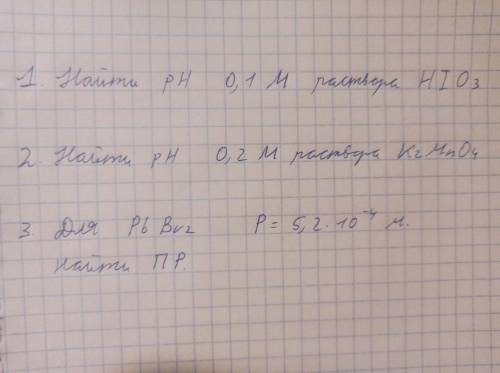 1. Найти pH 0,1 М раствора HIO3
2. Найти pH 0,2 М раствора K2MnO4
3. Для PbBr2 P = 5,2·10⁻⁴ М.
Найти ПР.